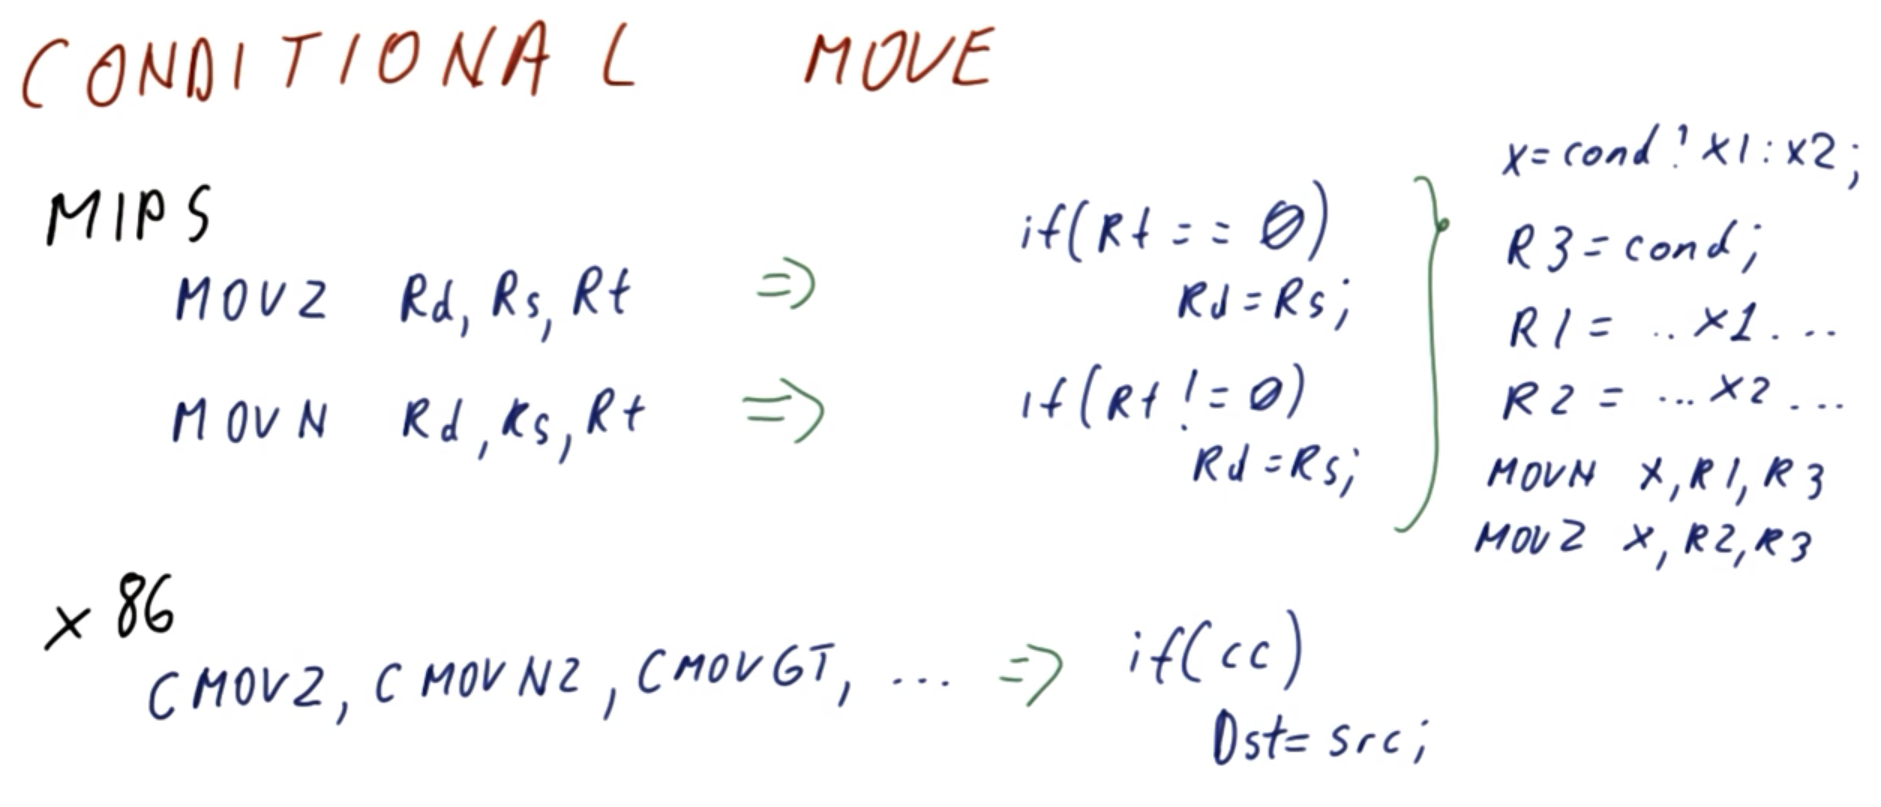 CONDITIONAL MOVE
MIPS
MOVZ Rd, Rs, Rt => if(Rt == 0)
Rd = Rs;
MOVN Rd, Rs, Rt => if(Rt != 0)
Rd = Rs;
x = cond ? X1 : X2;
R3 = cond;
R1 = .. X1 ...
R2 = ... X2 ...
MOVN X, R1, R3
MOVZ X, R2, R3
x86
CMOVZ, CMOVNZ, CMOVGT, ... => if(cc)
Dst = src;